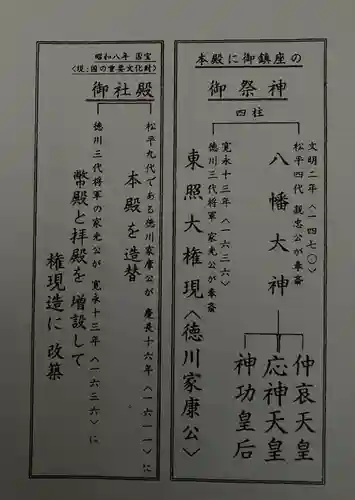 本殿に御鎮座の
御祭神
四柱
文明二年〈一四七〇〉
松平四代 親忠公が奉斎
八幡大神
仲哀天皇
応神天皇
神功皇后
寛永十三年〈一六三六〉
徳川三代将軍 家光公が奉斎
東照大権現〈徳川家康公〉
昭和八年 国宝
〈現:国の重要文化財〉
御社殿
松平九代である徳川家康公が 慶長十六年〈一六一一〉に
本殿を造替
徳川三代将軍の家光公が 寛永十三年〈一六三六〉に
幣殿と拝殿を増設して
権現造に改築